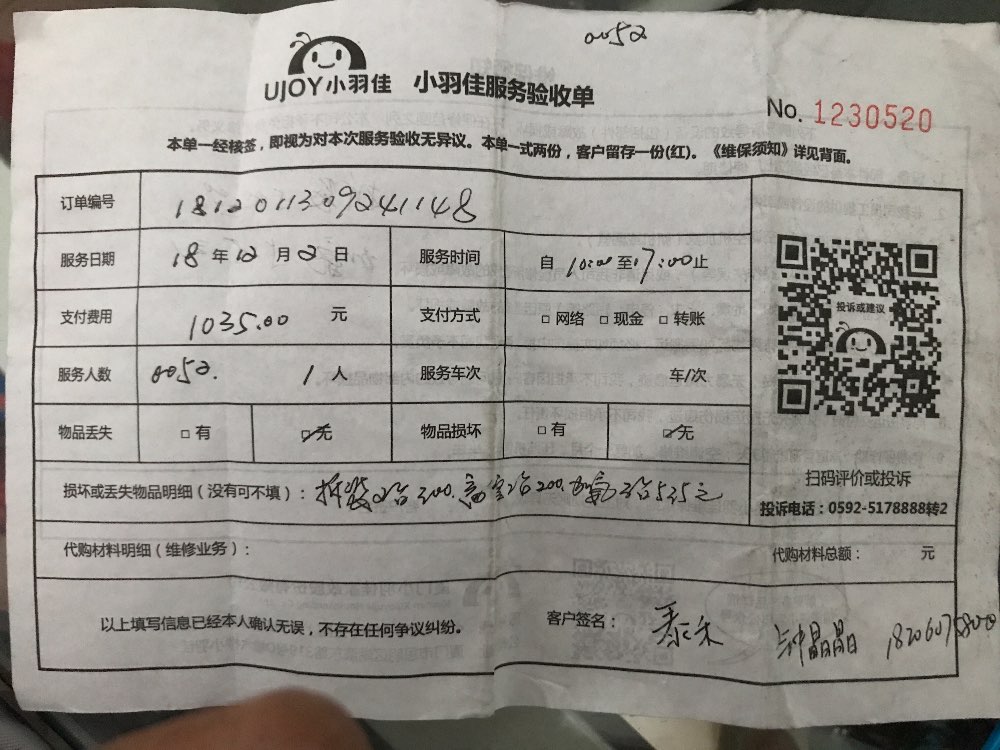 0052
UJOY小羽佳 小羽佳服务验收单
No. 1230520
本单一经核签，即视为对本次服务验收无异议。本单一式两份，客户留存一份(红)。《维保须知》详见背面。
订单编号 181201309241148
服务日期 18 年 12 月 2 日 服务时间 自 10:00 至 17:00 止
支付费用 1035.00 元 支付方式 □ 网络 □ 现金 □ 转账
服务人数 0052. 1 人 服务车次 车/次
物品丢失 □ 有 ☑ 无 物品损坏 □ 有 ☑ 无
投诉或建议
扫码评价或投诉
投诉电话：0592-5178888转2
损坏或丢失物品明细（没有可不填）： 拆装2台300. 高空2台200. 加氟3台535元
代购材料明细（维修业务）： 代购材料总额： 元
以上填写信息已经本人确认无误，不存在任何争议纠纷。 客户签名： 泰禾 钟晶晶